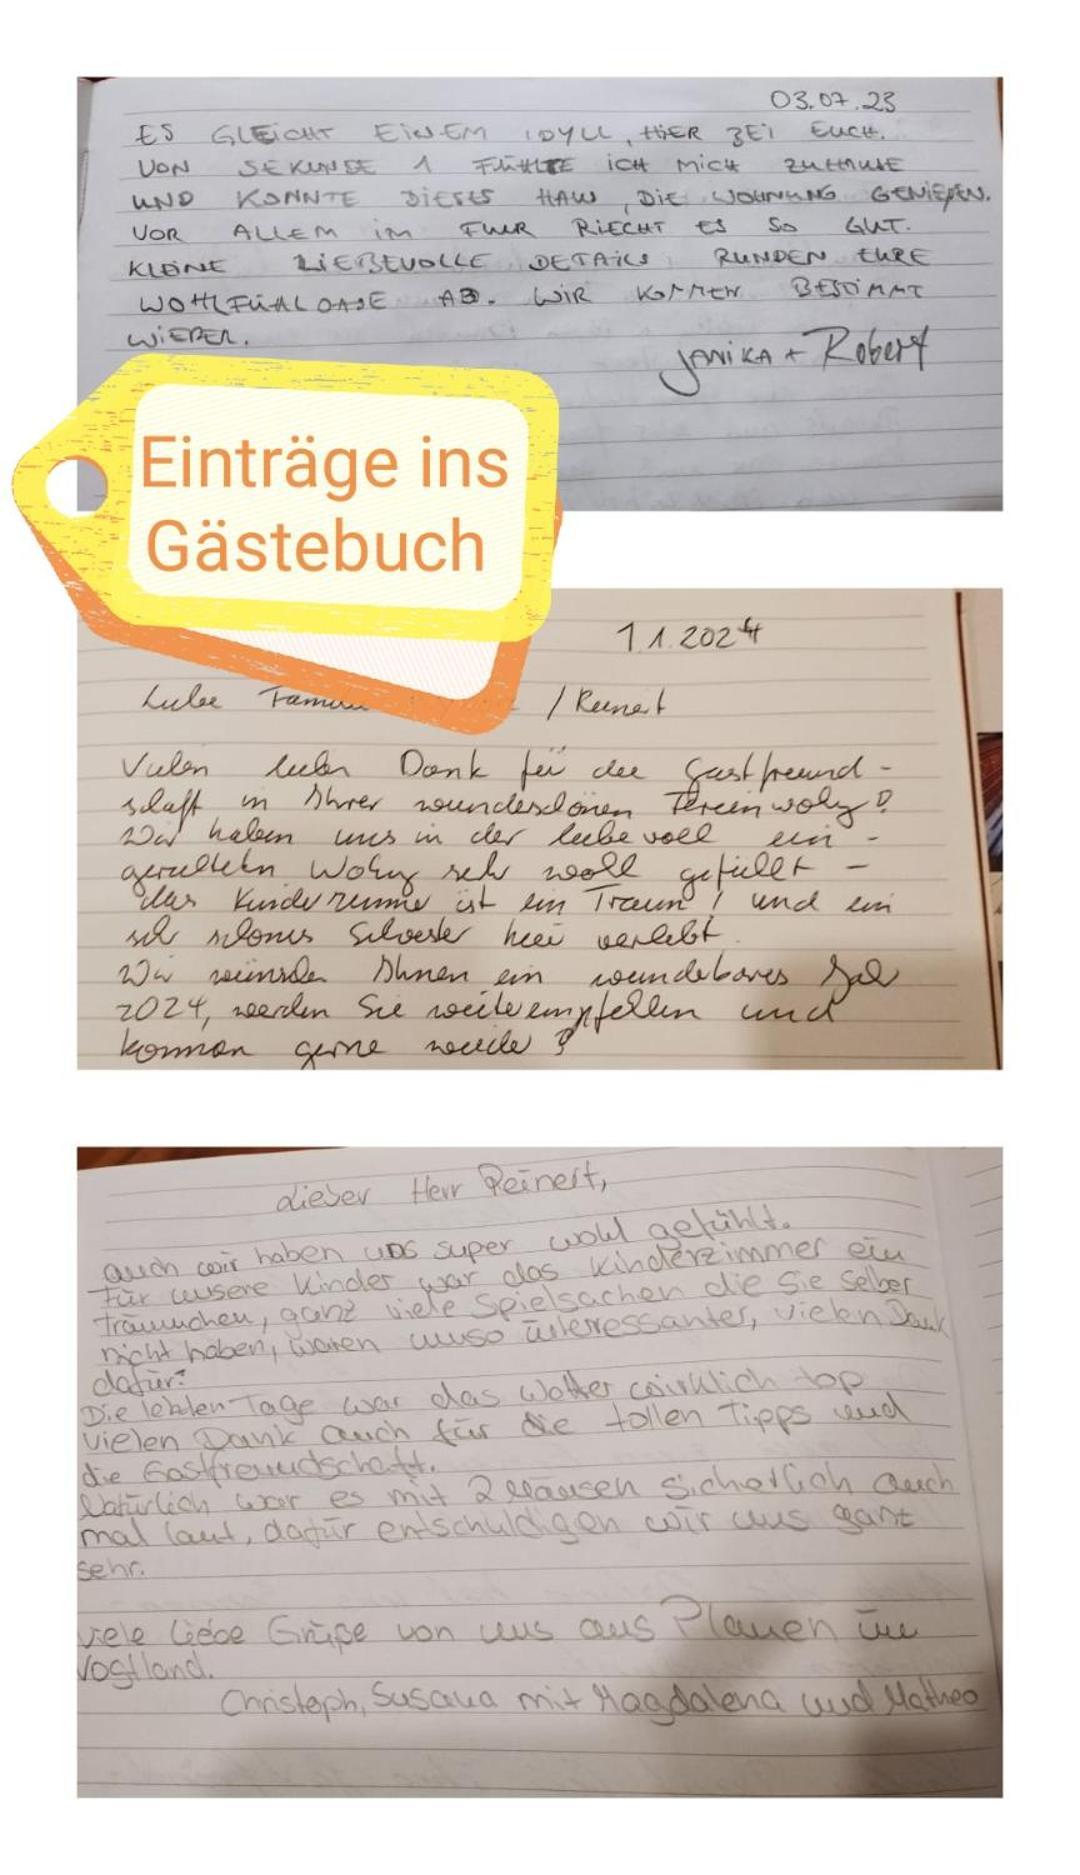 03.07.23
ES GLEICHT EINEM IDYLL, HIER BEI EUCH.
VON SEKUNDE 1 FÜHLTE ICH MICH ZUHAUSE
UND KONNTE DIESES HAUS, DIE WOHNUNG GENIEßEN.
VOR ALLEM IM FLUR RIECHT ES SO GUT.
KLEINE LIEBEVOLLE DETAILS RUNDEN EURE
WOHLFÜHLOASE AB. WIR KOMMEN BESTIMMT
WIEDER.
JANIKA + Robert
Einträge ins
Gästebuch
1.1.2024
Liebe Familie / Reinert
Vielen lieben Dank für die Gastfreund-
schaft in Ihrer wunderschönen Ferienwohg!
Wir haben uns in der liebevoll ein-
gerichteten Wohng sehr wohl gefühlt -
das Kinderzimmer ist ein Traum! und ein
sehr schönes Silvester hier verlebt.
Wir wünschen Ihnen ein wunderbares Jahr
2024, werden Sie weiterempfehlen und
kommen gerne wieder!
Lieber Herr Reinert,
auch wir haben uns super wohl gefühlt.
Für unsere Kinder war das Kinderzimmer ein
Träumchen, ganz viele Spielsachen die Sie selber
nicht haben, waren umso interessanter, vielen Dank
dafür!
Die letzten Tage war das Wetter wirklich top
vielen Dank auch für die tollen Tipps und
die Gastfreundschaft.
Natürlich war es mit 2 Mäusen sicherlich auch
mal laut, dafür entschuldigen wir uns ganz
sehr.
Viele liebe Grüße von uns aus Plauen im
Vogtland.
Christoph, Susana mit Magdalena und Matheo